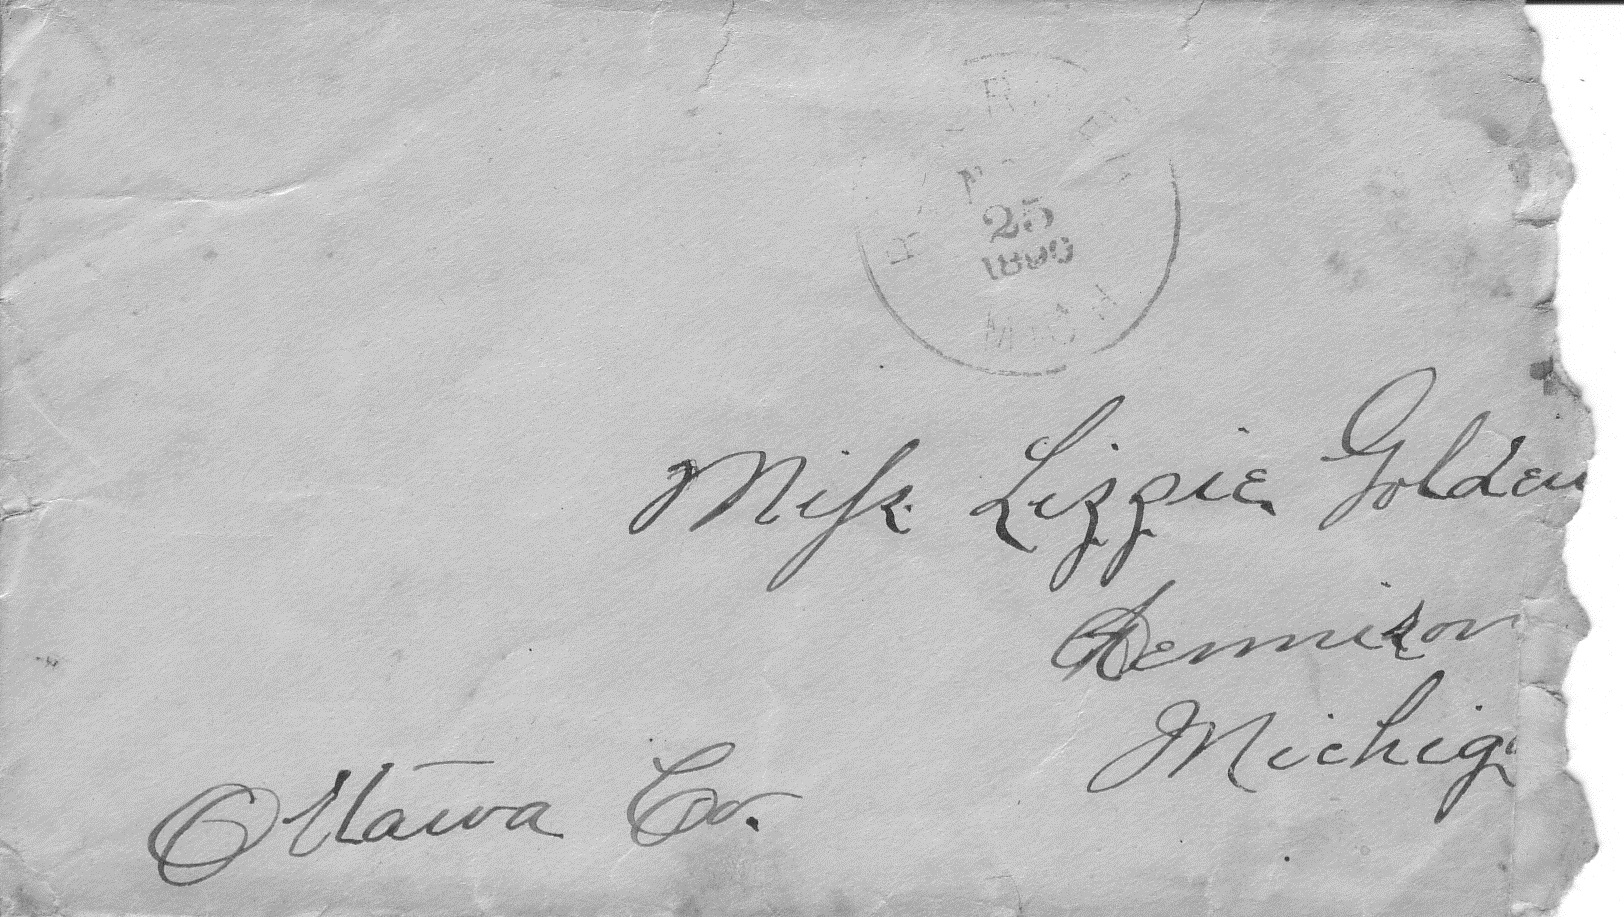 25
MICH
Miss Lizzie Golden
Dennison
Michig
Ottawa Co.